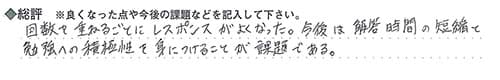 ◆総評 ※良くなった点や今後の課題などを記入して下さい。
回数を重ねるごとにレスポンスがよくなった。今後は解答時間の短縮と
勉強への積極性を身につけることが課題である。